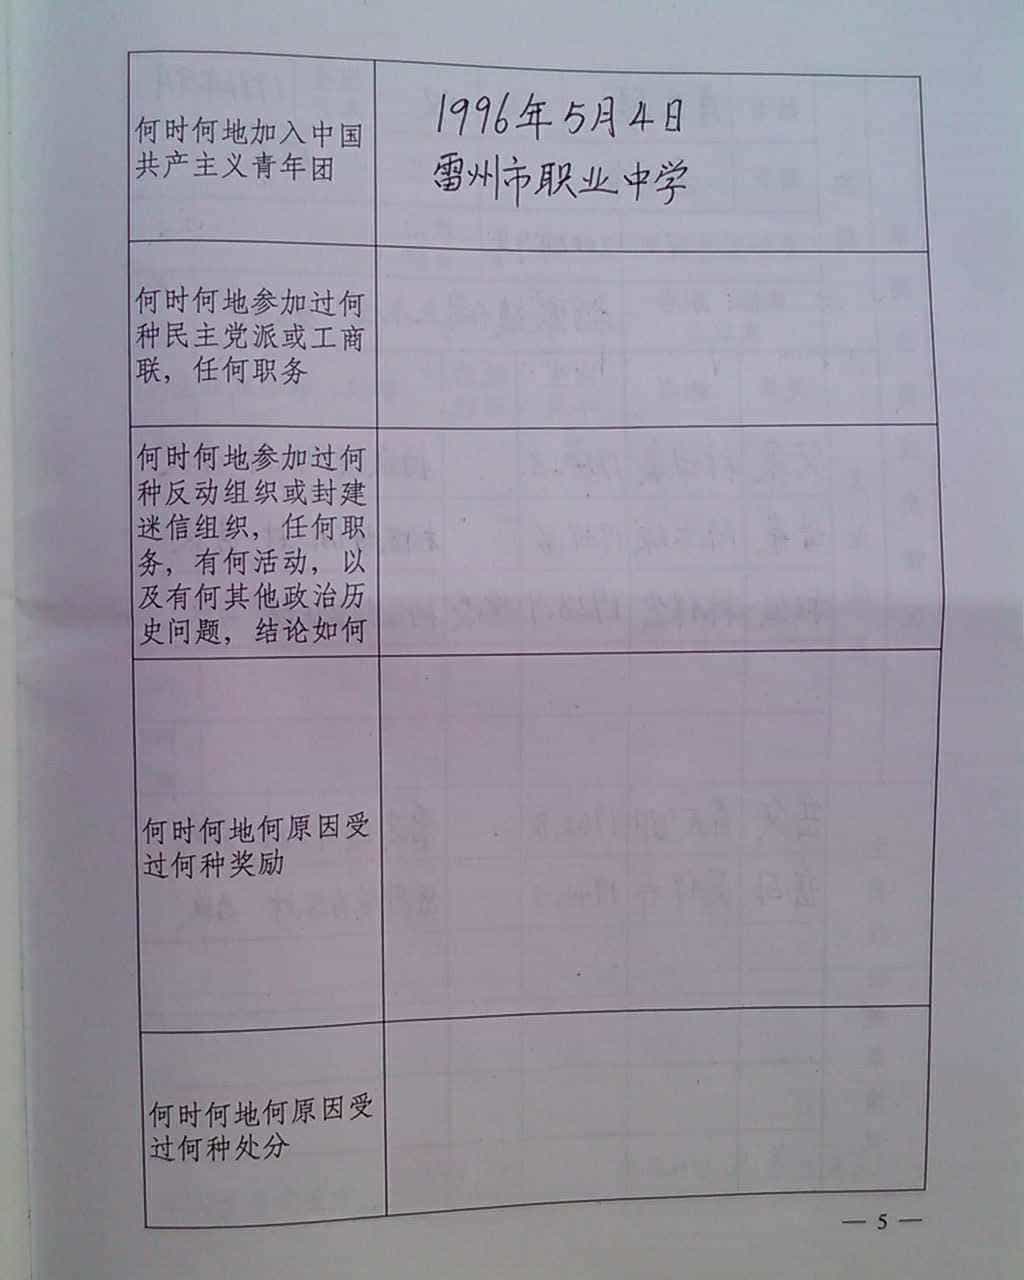 何时何地加入中国
共产主义青年团
1996年5月4日
雷州市职业中学
何时何地参加过何
种民主党派或工商
联，任何职务
何时何地参加过何
种反动组织或封建
迷信组织，任何职
务，有何活动，以
及有何其他政治历
史问题，结论如何
何时何地何原因受
过何种奖励
何时何地何原因受
过何种处分
— 5 —